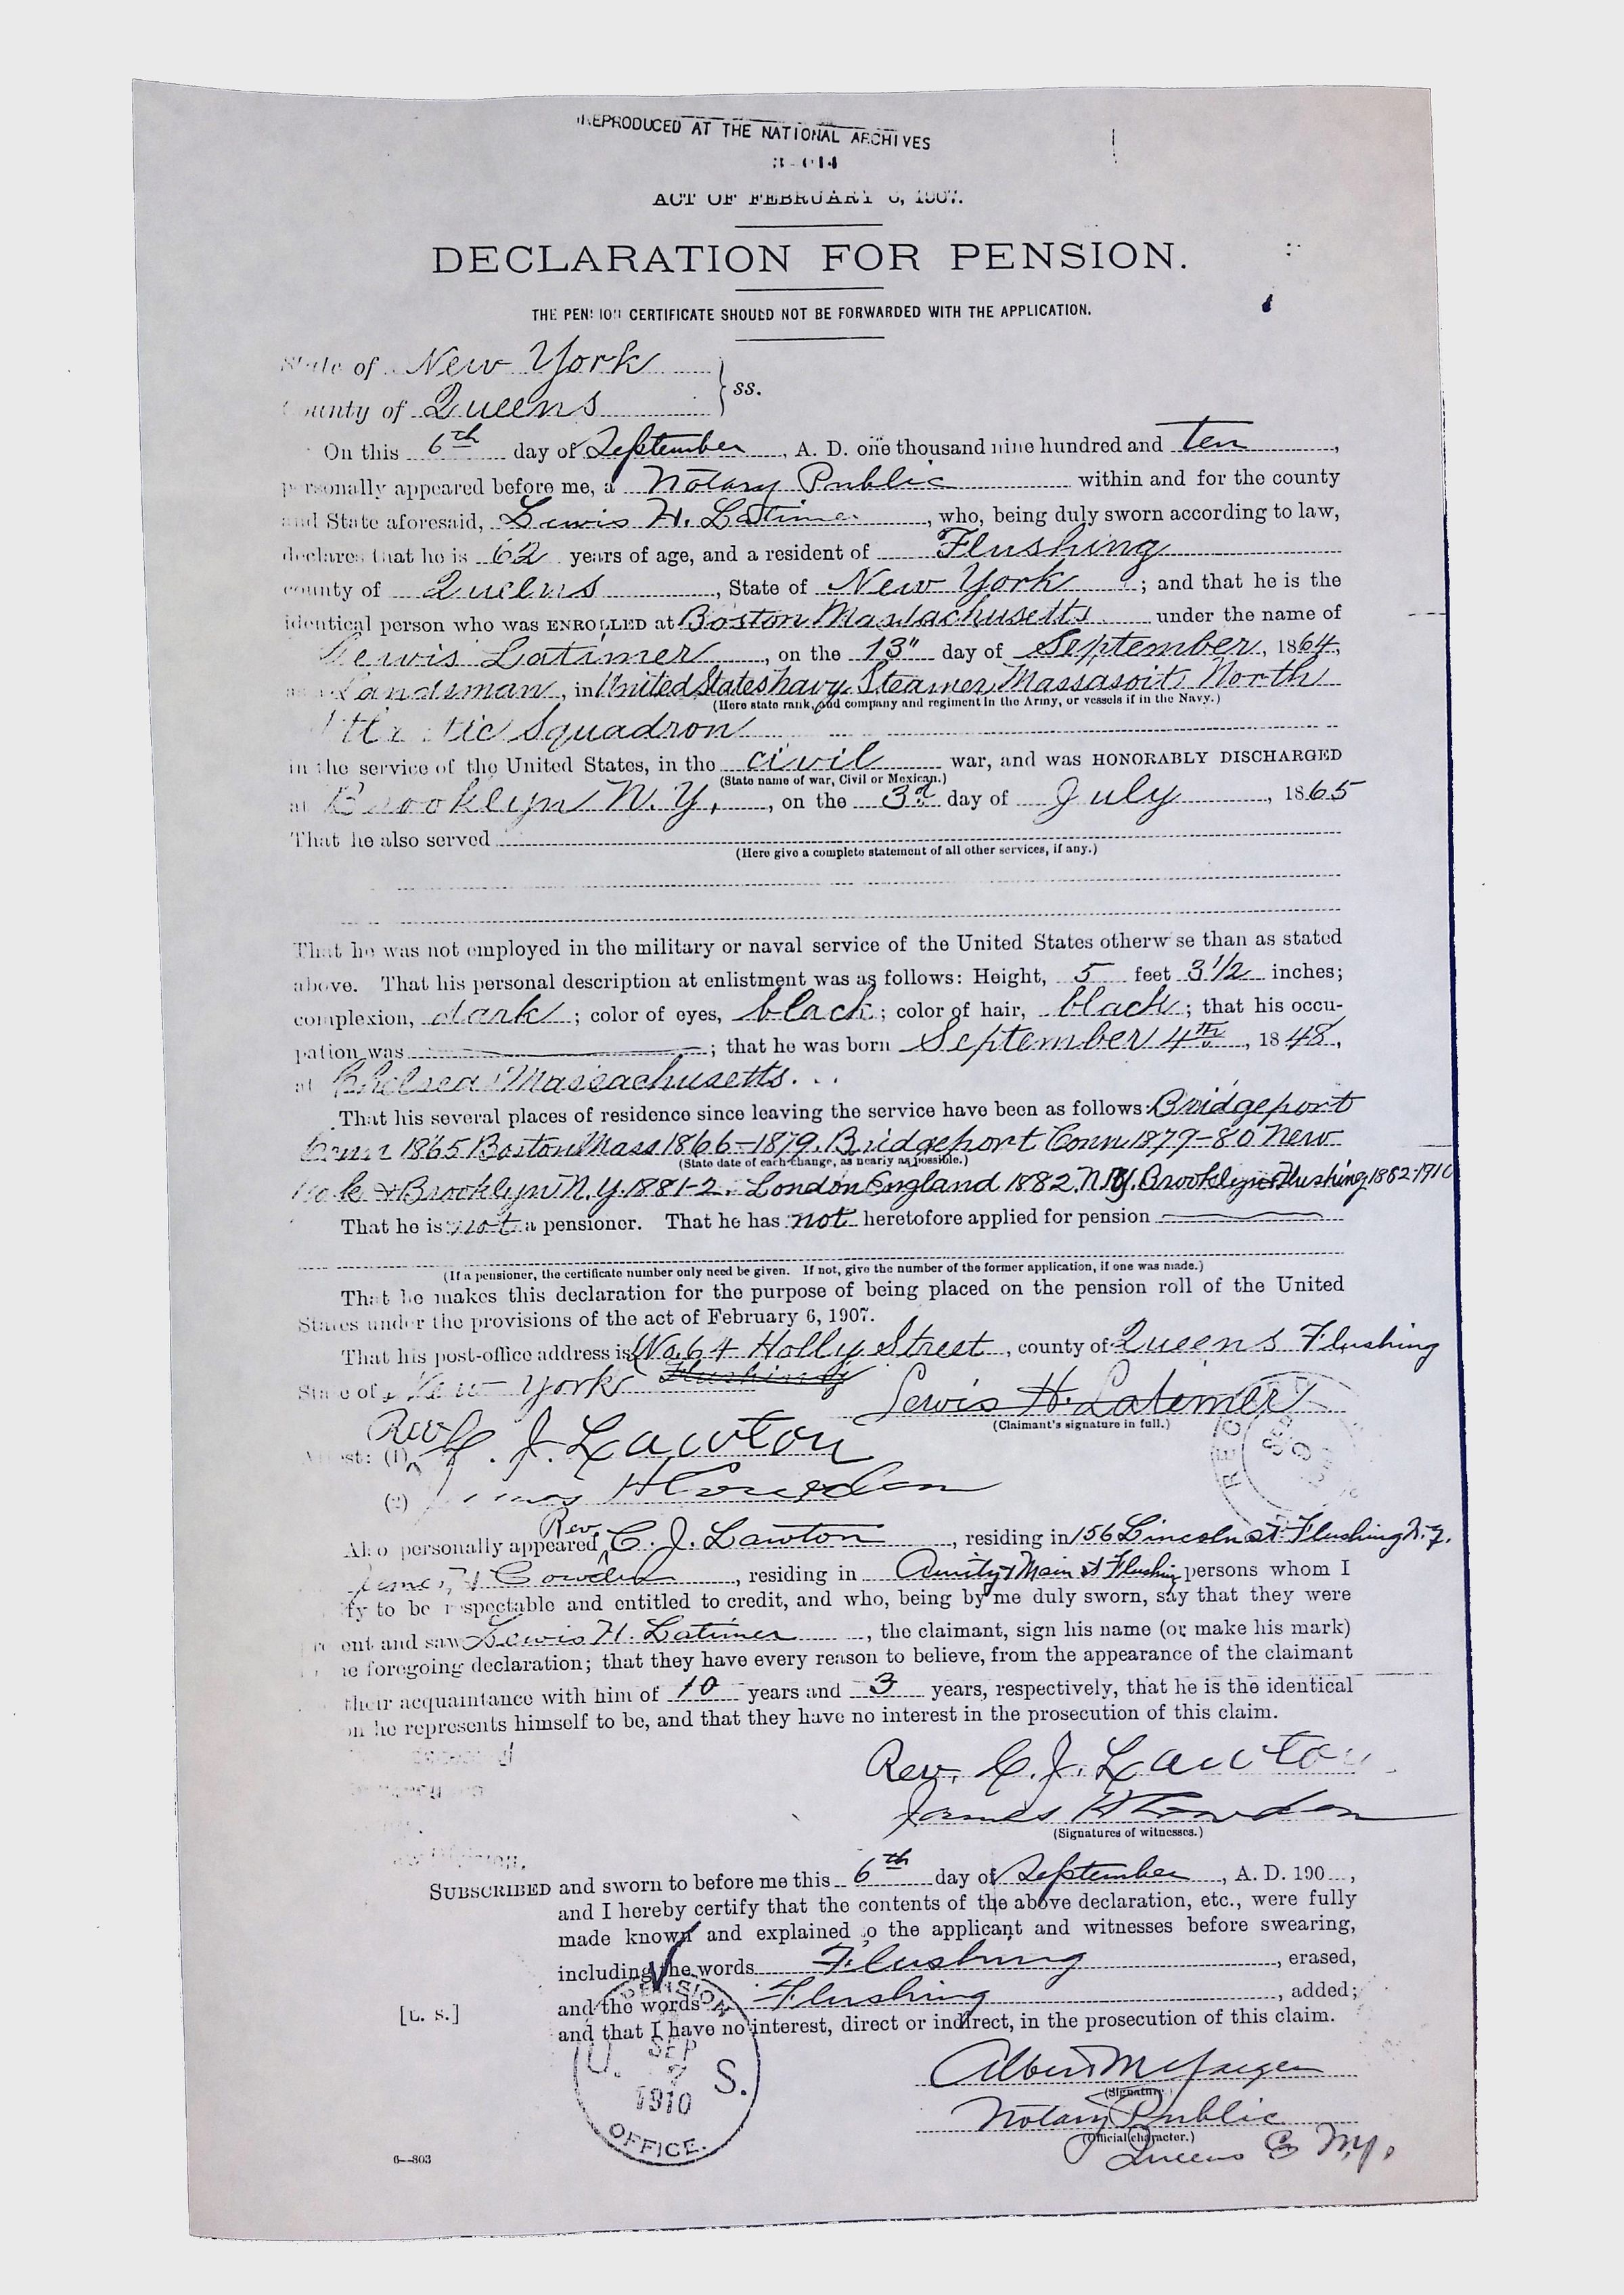 REPRODUCED AT THE NATIONAL ARCHIVES
3-014
ACT OF FEBRUARY 6, 1907.
DECLARATION FOR PENSION.
THE PENSION CERTIFICATE SHOULD NOT BE FORWARDED WITH THE APPLICATION.
State of New York
County of Queens } ss.
On this 6th day of September, A. D. one thousand nine hundred and ten,
personally appeared before me, a Notary Public within and for the county
and State aforesaid, Lewis H. Latimer, who, being duly sworn according to law,
declares that he is 62 years of age, and a resident of Flushing
county of Queens, State of New York; and that he is the
identical person who was ENROLLED at Boston Massachusetts under the name of
Lewis Latimer, on the 13" day of September, 1864,
as a Landsman, in United States Navy Steamer Massasoit North
(Here state rank, and company and regiment in the Army, or vessels if in the Navy.)
Atlantic Squadron
in the service of the United States, in the civil war, and was HONORABLY DISCHARGED
(State name of war, Civil or Mexican.)
at Brooklyn N. Y., on the 3d day of July, 1865
That he also served
(Here give a complete statement of all other services, if any.)
That he was not employed in the military or naval service of the United States otherwise than as stated
above. That his personal description at enlistment was as follows: Height, 5 feet 3 1/2 inches;
complexion, dark; color of eyes, black; color of hair, black; that his occu-
pation was ; that he was born September 4th, 1848,
at Chelsea Massachusetts...
That his several places of residence since leaving the service have been as follows: Bridgeport
Conn 1865 Boston Mass 1866-1879. Bridgeport Conn 1879-80 New
(State date of each change, as nearly as possible.)
York & Brooklyn N.Y. 1881-2. London England 1882. N.Y. Brooklyn & Flushing 1882-1910
That he is not a pensioner. That he has not heretofore applied for pension
(If a pensioner, the certificate number only need be given. If not, give the number of the former application, if one was made.)
That he makes this declaration for the purpose of being placed on the pension roll of the United
States under the provisions of the act of February 6, 1907.
That his post-office address is No. 64 Holly Street, county of Queens Flushing
State of New York Flushing
Lewis H. Latimer
(Claimant's signature in full.)
REC
SEP
9
Attest: (1) Rev C. J. Lawton
(2) James H Cowden
Also personally appeared Rev C. J. Lawton, residing in 156 Lincoln st. Flushing N.Y.
James H Cowden, residing in Amity & Main st Flushing persons whom I
fy to be respectable and entitled to credit, and who, being by me duly sworn, say that they were
present and saw Lewis H. Latimer, the claimant, sign his name (or make his mark)
he foregoing declaration; that they have every reason to believe, from the appearance of the claimant
their acquaintance with him of 10 years and 3 years, respectively, that he is the identical
on he represents himself to be, and that they have no interest in the prosecution of this claim.
Rev. C. J. Lawton
James H Cowden
(Signatures of witnesses.)
SUBSCRIBED and sworn to before me this 6th day of September, A. D. 190 ,
and I hereby certify that the contents of the above declaration, etc., were fully
made known and explained to the applicant and witnesses before swearing,
including the words Flushing, erased,
and the words Flushing, added;
[L. S.]
and that I have no interest, direct or indirect, in the prosecution of this claim.
PENSION
U. S.
SEP
7
1910
OFFICE.
(Signature.)
Notary Public
(Official character.)
Queens Co N.Y.
6-803